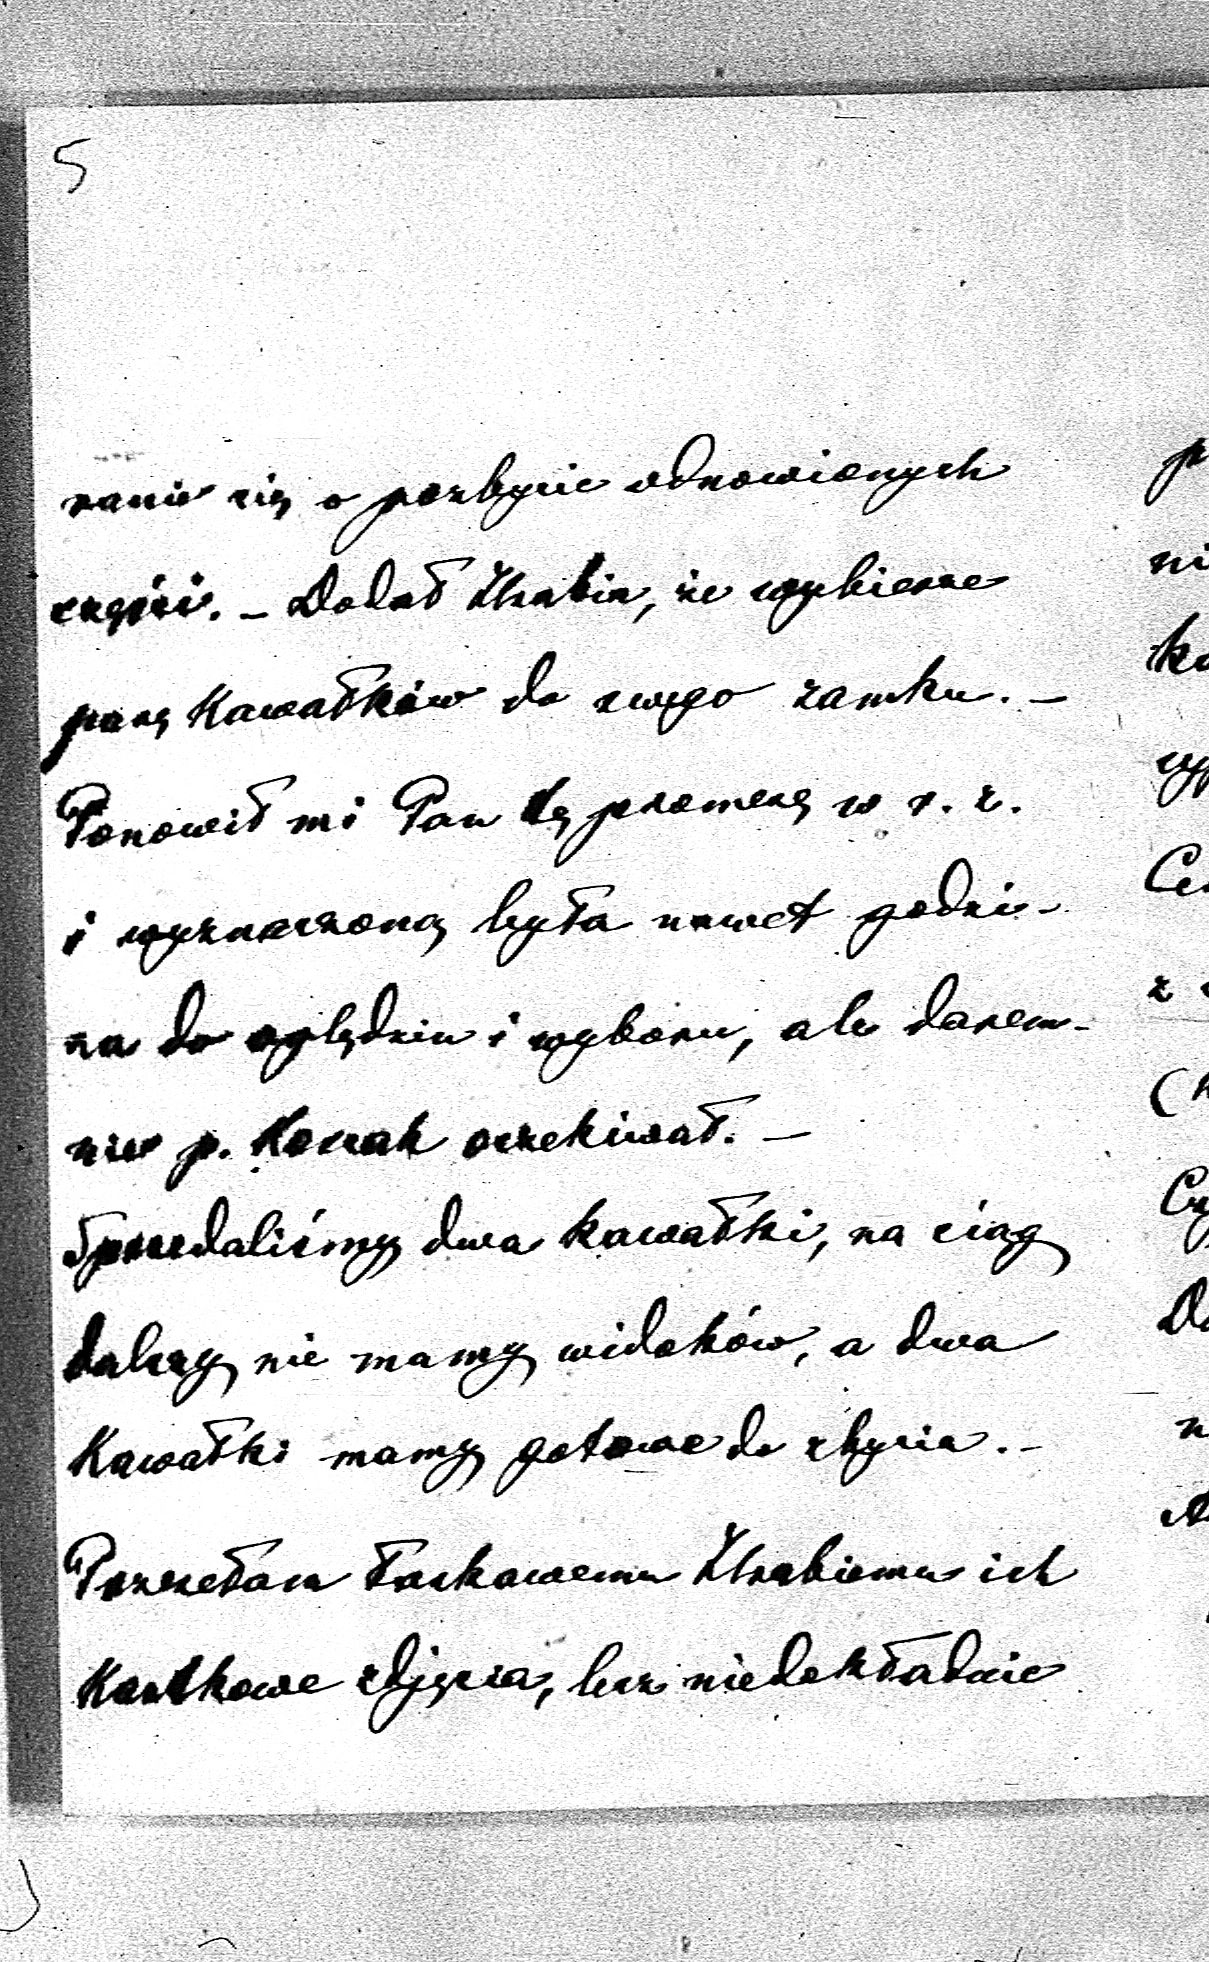 5
ranie się o pozbycie odnowionych
części. – Dodał Hrabia, że wybierze
parę kawałków do swego zamku. –
Ponowił mi Pan tę promesę w r. z.
i wyznaczoną była nawet godzi-
na do oględzin i wyboru, ale darem-
nie p. Kossak oczekiwał. –
Sprzedaliśmy dwa kawałki, na ciąg
dalszy nie mamy widoków, a dwa
Kawałki mamy gotowe do zbycia. –
Przesełam Łaskawemu Hrabiemu ich
Kartkowe zdjęcia, lecz niedokładnie